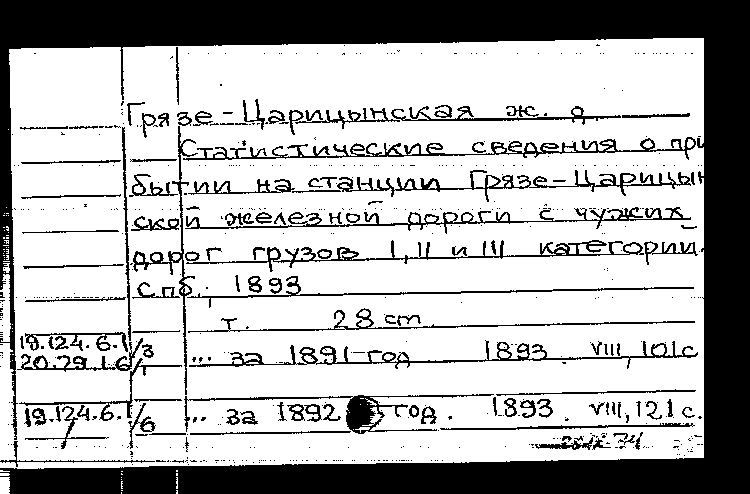 Грязе-Царицынская ж. д.
Статистические сведения о при
бытии на станции Грязе-Царицын
ской железной дороги с чужих
дорог грузов I, II и III категории.
Спб., 1893
т. 28 cm.
19.124.6.1/3 ... за 1891 год 1893. VIII, 101 с
20.79.1.6/1
19.124.6.1/6 ... за 1892 год. 1893. VIII, 121 с.